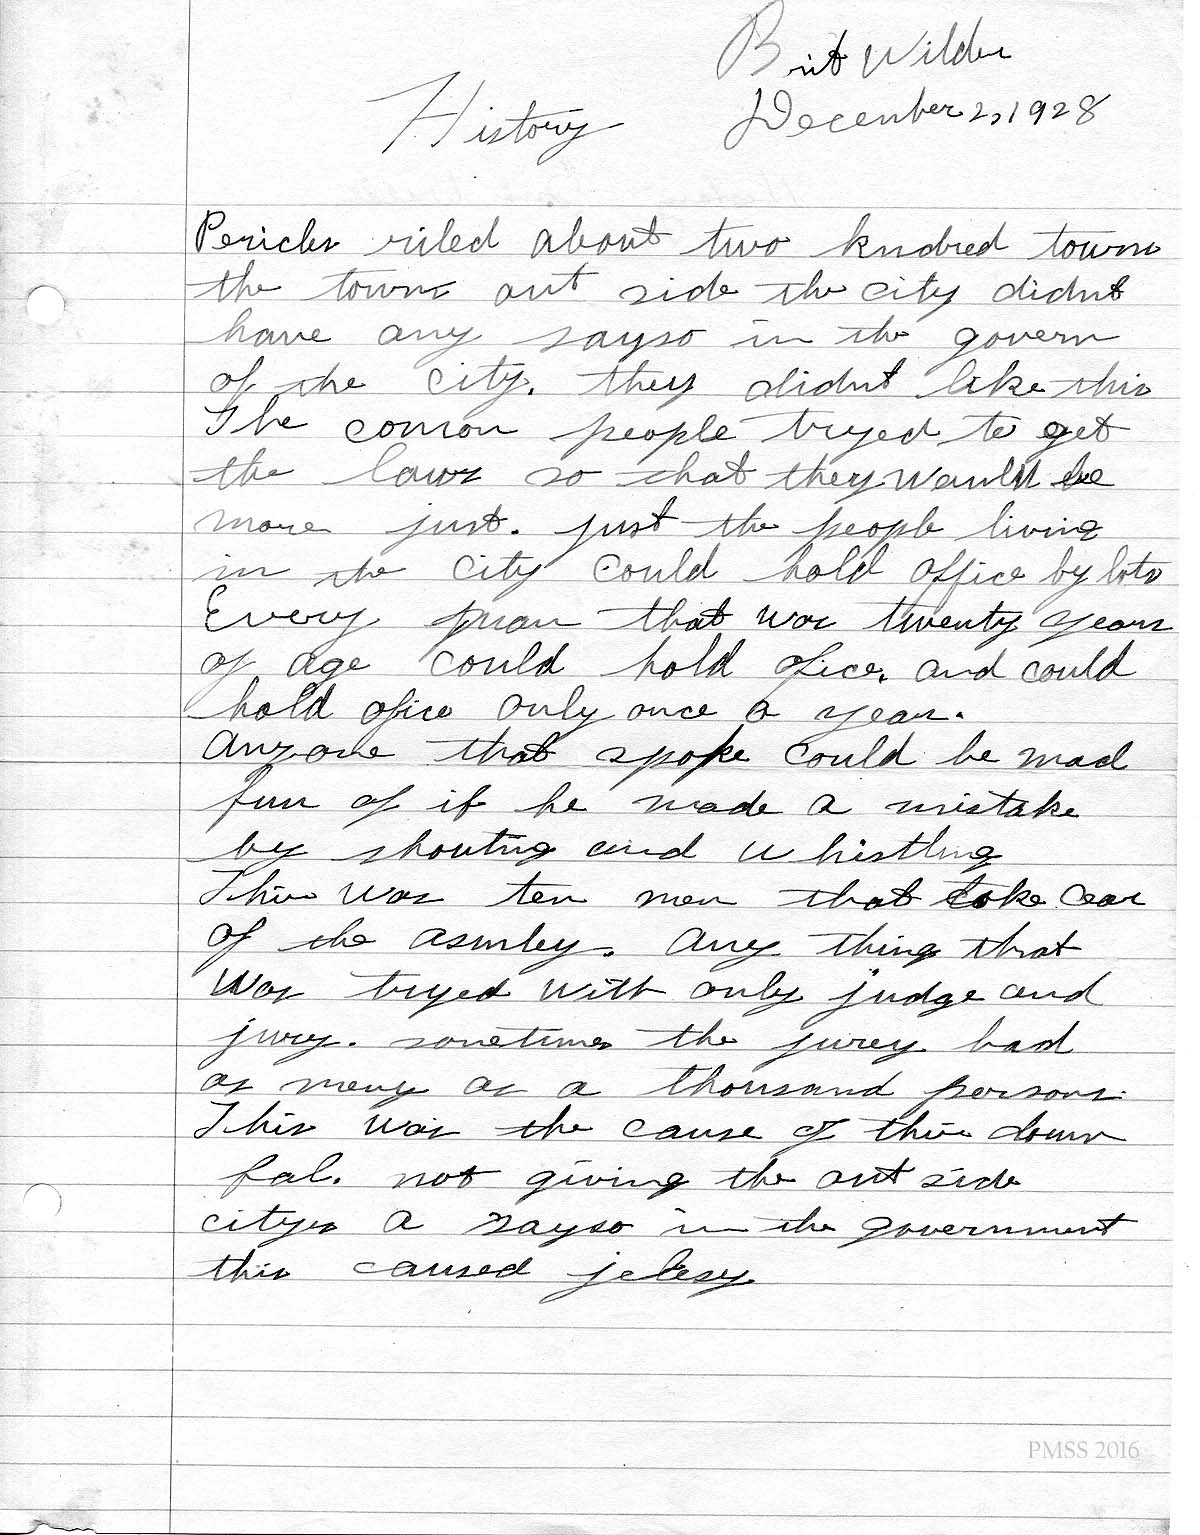 Brit Wilder
History
December 2, 1928
Pericles riled about two hndred towns
the towns out side the city didnt
have any sayso in the govern
of the city. they didnt like this
The comon people tryed to get
the laws so that they would be
more just. just the people living
in the city could hold office by lots
Every man that was twenty years
of age could hold ofice. and could
hold ofice only once a year.
Anyone that spoke could be mad
fun of if he made a mistake
by shouting and whistling
This was ten men that take cear
of the asmbley. Any thing that
was tryed with only judge and
jury. sometimes the jurey had
as meny as a thousand persons.
This was the cause of thier down
fal. not giving the out side
cityes a sayso in the government
this caused jelesy.
PMSS 2016